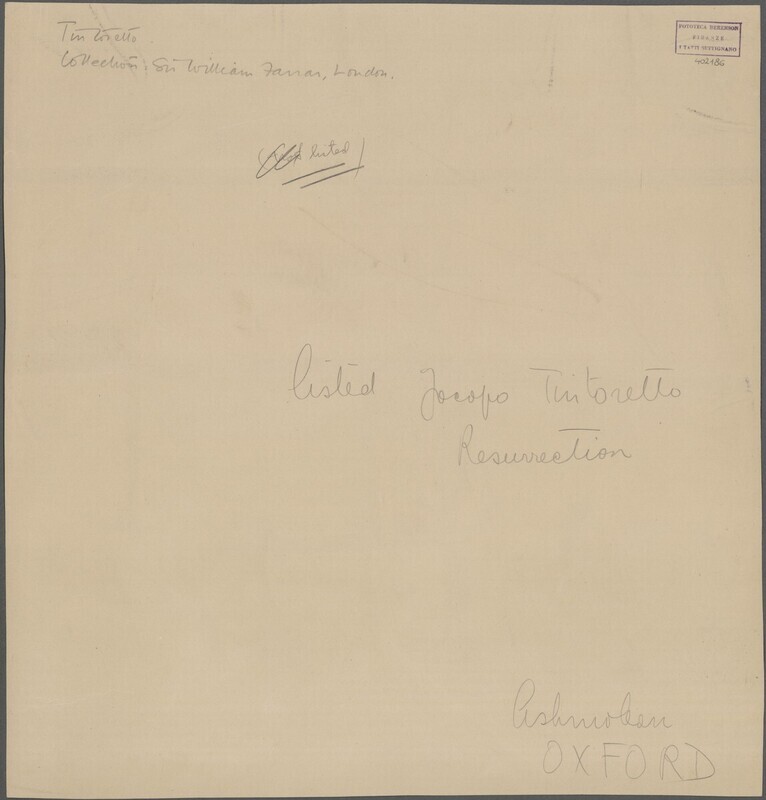 Tintoretto
Collection: Sir William Farrar, London.
FOTOTECA BERENSON
I TATTI SETTIGNANO
402186
listed)
listed Jacopo Tintoretto
Resurrection
Ashmolean
OXFORD